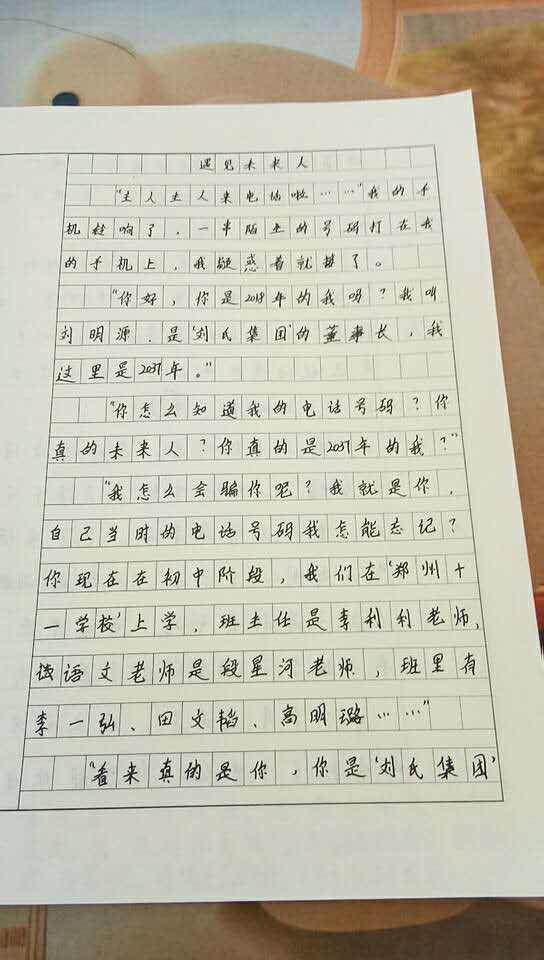 遇见未来人
"主人主人来电话啦……"我的手
机铃响了，一串陌生的号码打在我
的手机上，我疑惑着就接了。
"你好，你是2018年的我吗？我叫
刘明源，是'刘氏集团'的董事长，我
这里是2037年。"
"你怎么知道我的电话号码？你
真的未来人？你真的是2037年的我？"
"我怎么会骗你呢？我就是你，
自己当时的电话号码我怎能忘记？
你现在在初中阶段，我们在'郑州十
一学校'上学，班主任是李利利老师，
语文老师是段星河老师，班里有
李一弘、田文韬、高明璐……"
"看来真的是你，你是'刘氏集团'